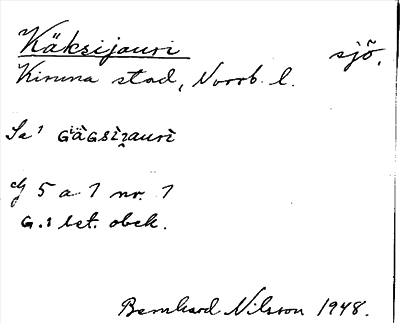 Käksijauri sjö.
Kiruna stad, Norrb. l.
Sa¹ GiàGsìi̯aurì
5 a 1 nr. 1
G.s bet. obek.
Bernhard Nilsson 1948.